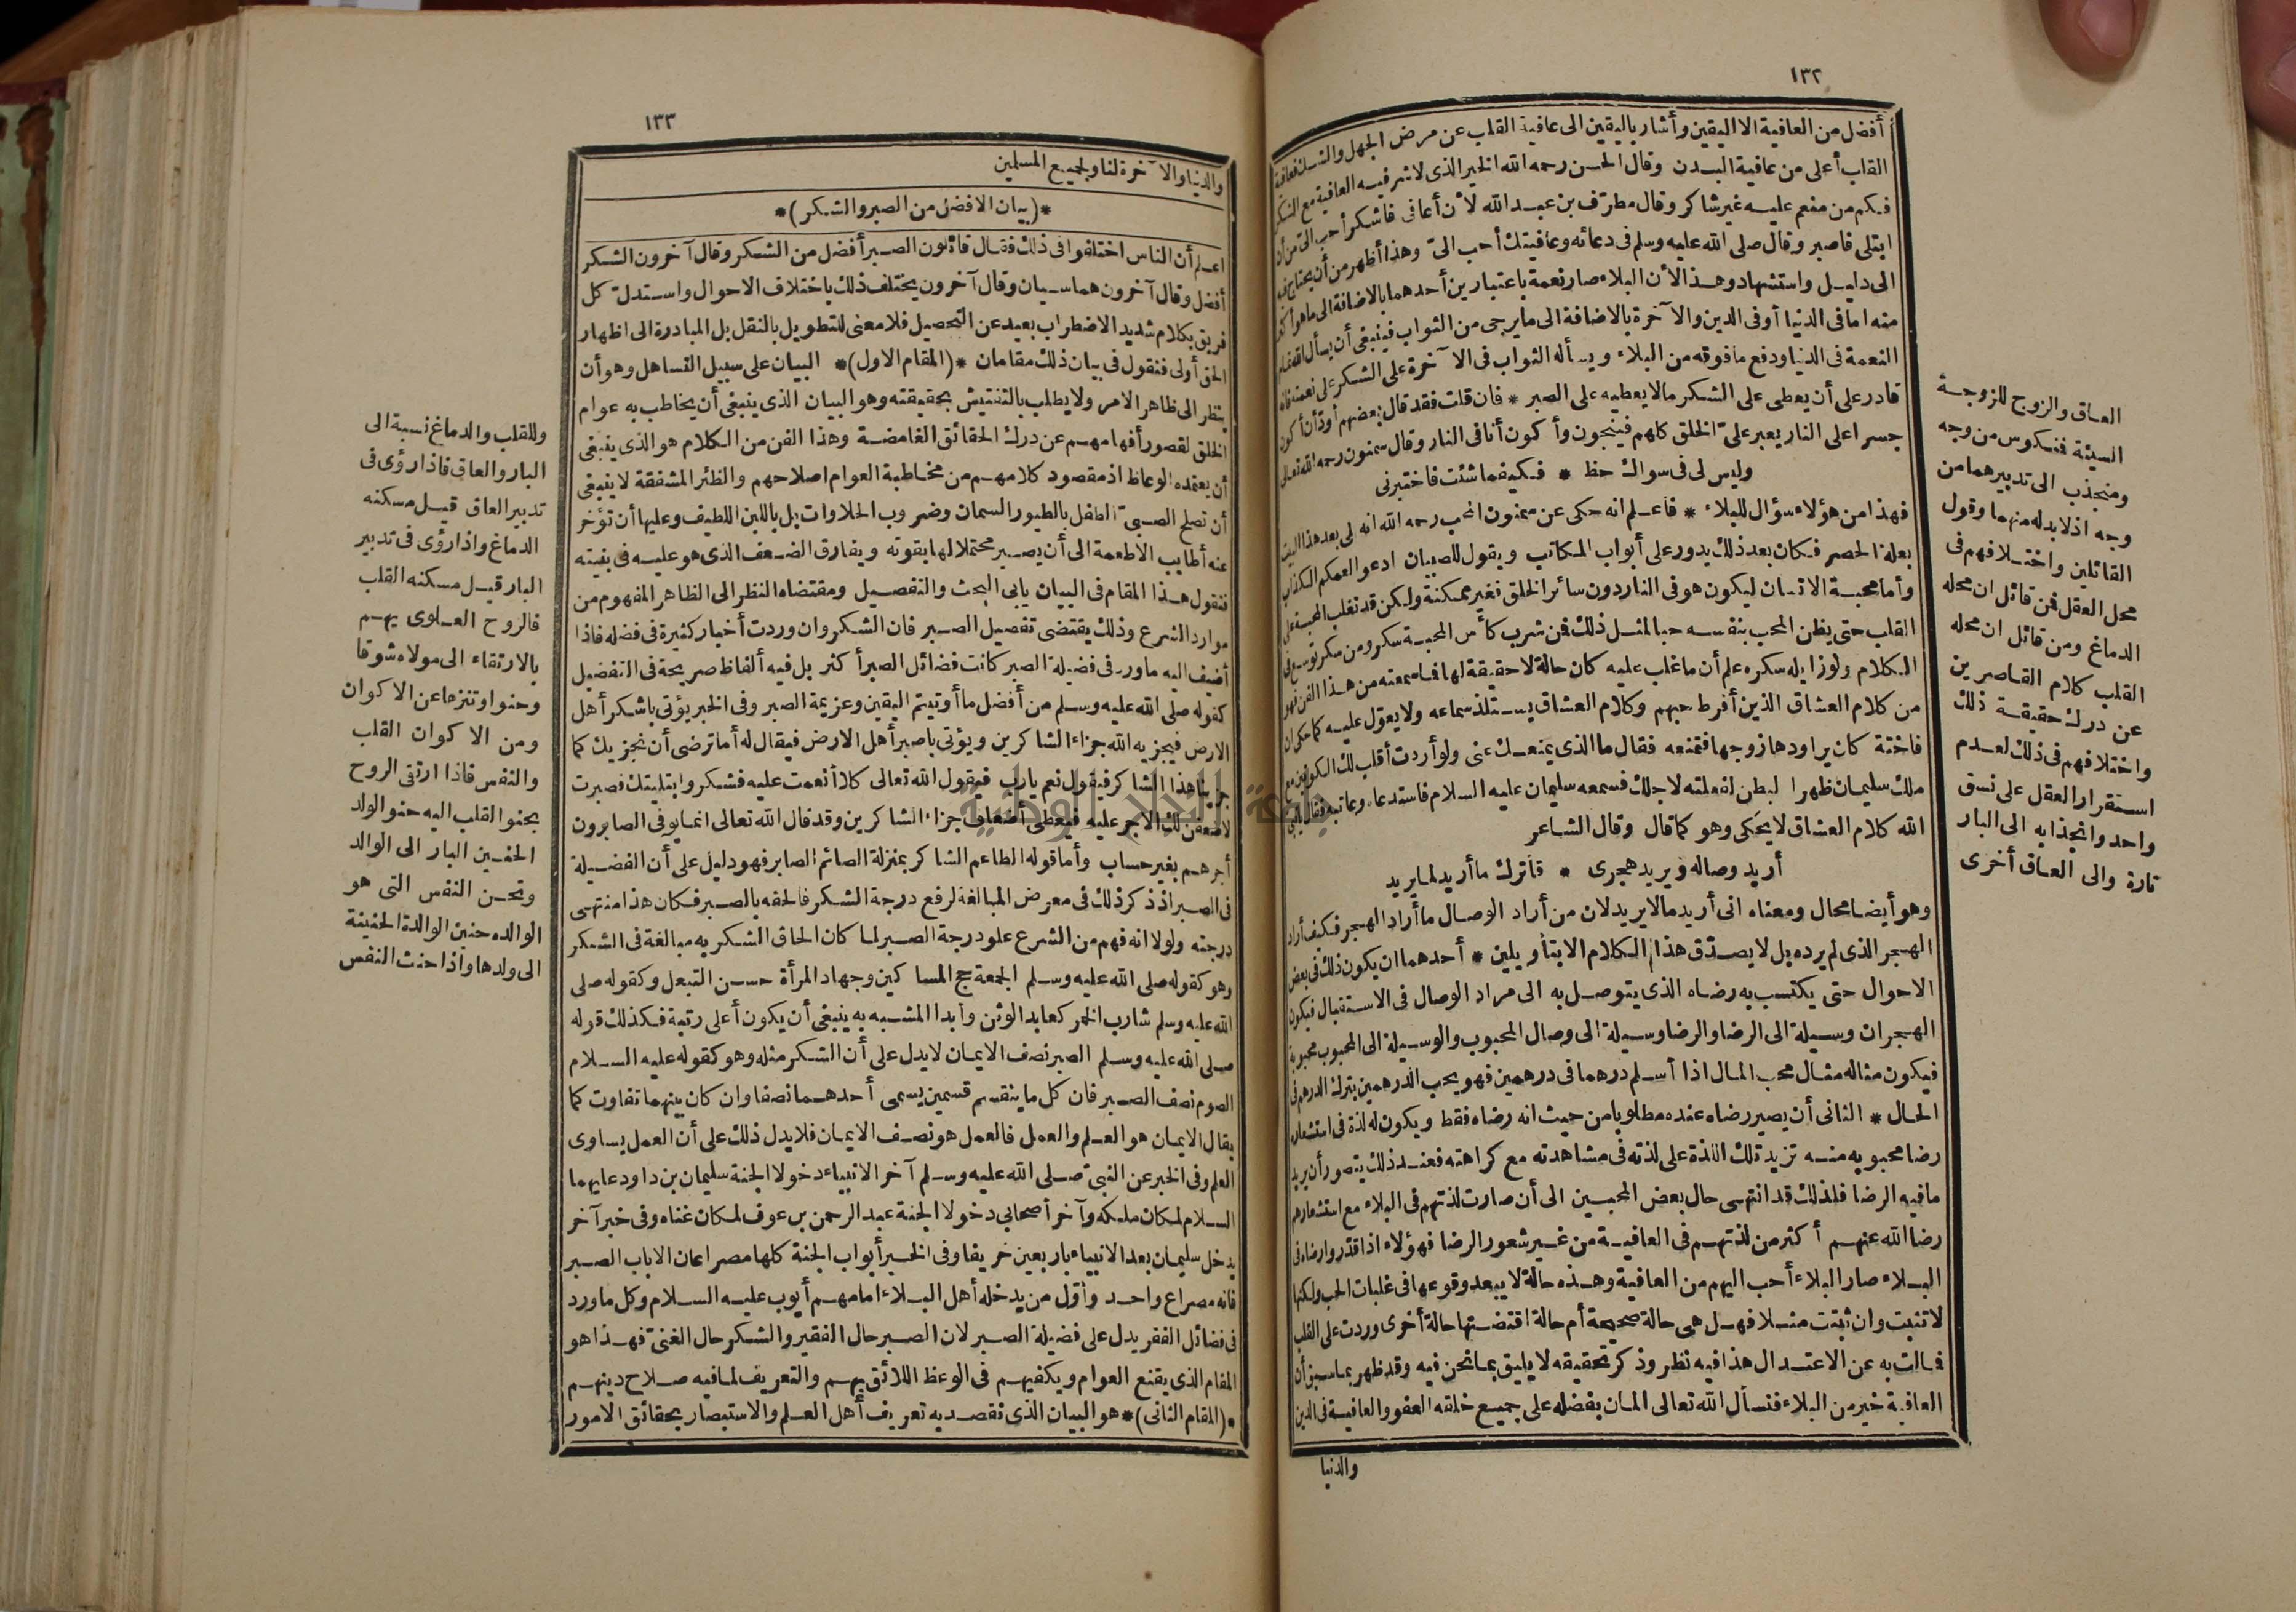 ١٣٢
أفضل من العافية الا اليقين وأشار باليقين الى عافية القلب عن مرض الجهل والشك فعافية
القلب أعلى من عافية البدن وقال الحسن رحمه الله الخير الذى لا شر فيه العافية مع الشكر
فكم من منعم عليه غير شاكر وقال مطرّف بن عبد الله لأن أعافى فاشكر أحب الىّ من أن
ابتلى فاصبر وقال صلى الله عليه وسلم فى دعائه وعافيتك أحب الىّ وهذا أظهر من أن يحتاج فيه
الى دليل واستشهاد وهذا لأن البلاء صار نعمة باعتبارين أحدهما بالاضافة الى ما هو أكثر
منه اما فى الدنيا أو فى الدين والآخرة بالاضافة الى ما يرجى من الثواب فينبغى أن يسأل الله تمام
النعمة فى الدنيا ودفع ما فوقه من البلاء ويسأله الثواب فى الآخرة على الشكر على نعمته فانه
قادر على أن يعطى على الشكر مالا يعطيه على الصبر * فان قلت فقد قال بعضهم أود أن أكون
جسرا على النار يعبر علىّ الخلق كلهم فينجون وأكون أنا فى النار وقال سمنون رحمه الله تعالى
وليس لى فى سواك حظ * فكيفما شئت فاختبرنى
فهذا من هؤلاء سؤال للبلاء * فاعلم انه حكى عن سمنون المحب رحمه الله انه بلى بعد هذا البيت
بعلة الحصر فكان بعد ذلك يدور على أبواب المكاتب ويقول للصبيان ادعوا لعمكم الكذاب
وأما محبة الانسان ليكون هو فى النار دون سائر الخلق فغير ممكنة ولكن قد تغلب المحبة على
القلب حتى يظن المحب بنفسه حبا لمثل ذلك فمن شرب كأس المحبة سكر ومن سكر توسع فى
الكلام ولو زايله سكره علم أن ما غلب عليه كان حالة لا حقيقة لها فما سمعته من هذا الفن فهو
من كلام العشاق الذين أفرط حبهم وكلام العشاق يستلذ سماعه ولا يعوّل عليه كما حكى ان
فاختة كان يراودها زوجها فتمنعه فقال ما الذى يمنعك عنى ولو أردت أقلب لك الكونين مع
ملك سليمان ظهرا لبطن لفعلته لاجلك فسمعه سليمان عليه السلام فاستدعاه وعاتبه فقال يا نبى
الله كلام العشاق لا يحكى وهو كما قال وقال الشاعر
أريد وصاله ويريد هجرى * فأترك ما أريد لما يريد
وهو أيضا محال ومعناه انى أريد مالا يريد لان من أراد الوصال ما أراد الهجر فكيف أراد
الهجر الذى لم يرده بل لا يصدّق هذا الكلام الا بتأويلين * أحدهما ان يكون ذلك فى بعض
الاحوال حتى يكتسب به رضاه الذى يتوصل به الى مراد الوصال فى الاستقبال فيكون
الهجران وسيلة الى الرضا والرضا وسيلة الى وصال المحبوب والوسيلة الى المحبوب محبوبة
فيكون مثاله مثال محب المال اذا أسلم درهما فى درهمين فهو يحب الدرهمين يترك الدرهم فى
الحال * الثانى أن يصير رضاه عنده مطلوبا من حيث انه رضاه فقط ويكون له لذة فى استشعاره
رضا محبوبه منه تزيد تلك اللذة على لذته فى مشاهدته مع كراهته فعند ذلك يتصور أن يريد
ما فيه الرضا فلذلك قد انتهى حال بعض المحبين الى أن صارت لذتهم فى البلاء مع استشعارهم
رضا الله عنهم أكثر من لذتهم فى العافية من غير شعور الرضا فهؤلاء اذا قدّروا رضاه فى
البلاء صار البلاء أحب اليهم من العافية وهذه حالة لا يبعد وقوعها فى غلبات الحب ولكنها
لا تثبت وان ثبتت مثلا فهل هى حالة صحيحة أم حالة اقتضتها حالة أخرى وردت على القلب
فمالت به عن الاعتدال هذا فيه نظر وذكر تحقيقه لا يليق بما نحن فيه وقد ظهر بما سبق أن
العافية خير من البلاء فنسأل الله تعالى المان بفضله على جميع خلقه العفو والعافية فى الدين
والدنيا
العاق والزوج للزوجة
السيئة فنكوس من وجه
ومنجذب الى تدبيرهما من
وجه اذ لا بد له منهما وقول
القائلين واختلافهم فى
محل العقل فمن قائل ان محله
الدماغ ومن قائل ان محله
القلب كلام القاصرين
عن درك حقيقة ذلك
واختلافهم فى ذلك لعدم
استقرار العقل على نسق
واحد وانجذابه الى البار
تارة والى العاق أخرى
١٣٣
والدنيا والآخرة لنا ولجميع المسلمين
*(بيان الافضل من الصبر والشكر)*
اعلم أن الناس اختلفوا فى ذلك فقال قائلون الصبر أفضل من الشكر وقال آخرون الشكر
أفضل وقال آخرون هما سيان وقال آخرون يختلف ذلك باختلاف الاحوال واستدلّ كل
فريق بكلام شديد الاضطراب بعيد عن التحصيل فلا معنى للتطويل بالنقل بل المبادرة الى اظهار
الحق أولى فنقول فى بيان ذلك مقامان *(المقام الاول)* البيان على سبيل التساهل وهو أن
ينظر الى ظاهر الامر ولا يطلب بالتفتيش بحقيقته وهو البيان الذى ينبغى أن يخاطب به عوام
الخلق لقصور أفهامهم عن درك الحقائق الغامضة وهذا الفن من الكلام هو الذى ينبغى
أن يعتمده الوعاظ اذ مقصود كلامهم من مخاطبة العوام اصلاحهم والظئر المشفقة لا ينبغى
أن تصلح الصبىّ الطفل بالطيور السمان وضروب الحلاوات بل باللبن اللطيف وعليها أن تؤخر
عنه أطايب الاطعمة الى أن يصير محتملا لها بقوته ويفارق الضعف الذى هو عليه فى بنيته
فنقول هذا المقام فى البيان يابى البحث والتفصيل ومقتضاه النظر الى الظاهر المفهوم من
موارد الشرع وذلك يقتضى تفضيل الصبر فان الشكر وان وردت أخبار كثيرة فى فضله فاذا
أضيف اليه ما ورد فى فضيلة الصبر كانت فضائل الصبر أكثر بل فيه ألفاظ صريحة فى التفضيل
كقوله صلى الله عليه وسلم من أفضل ما أوتيتم اليقين وعزيمة الصبر وفى الخبر يؤتى باشكر أهل
الارض فيجزيه الله جزاء الشاكرين ويؤتى باصبر أهل الارض فيقال له أما ترضى أن نجزيك كما
جزينا هذا الشاكر فيقول نعم يارب فيقول الله تعالى كلا أنعمت عليه فشكر وابتليتك فصبرت
لاضعفن لك الاجر عليه فيعطى أضعاف جزاء الشاكرين وقد قال الله تعالى انما يوفى الصابرون
أجرهم بغير حساب وأما قوله الطاعم الشاكر بمنزلة الصائم الصابر فهو دليل على أن الفضيلة
فى الصبر اذ ذكر ذلك فى معرض المبالغة لرفع درجة الشكر فالحقه بالصبر فكان هذا منتهى
درجته ولولا انه فهم من الشرع علو درجة الصبر لما كان الحاق الشكر به مبالغة فى الشكر
وهو كقوله صلى الله عليه وسلم الجمعة حج المساكين وجهاد المرأة حسن التبعل وكقوله صلى
الله عليه وسلم شارب الخمر كعابد الوثن وأبدا المشبه به ينبغى أن يكون أعلى رتبة فكذلك قوله
صلى الله عليه وسلم الصبر نصف الايمان لا يدل على أن الشكر مثله وهو كقوله عليه السلام
الصوم نصف الصبر فان كل ما ينقسم قسمين يسمى أحدهما نصفا وان كان بينهما تفاوت كما
يقال الايمان هو العلم والعمل فالعمل هو نصف الايمان فلا يدل ذلك على أن العمل يساوى
العلم وفى الخبر عن النبىّ صلى الله عليه وسلم آخر الانبياء دخولا الجنة سليمان بن داود عليهما
السلام لمكان ملكه وآخر أصحابى دخولا الجنة عبد الرحمن بن عوف لمكان غناه وفى خبر آخر
يدخل سليمان بعد الانبياء باربعين خريفا وفى الخبر أبواب الجنة كلها مصراعان الا باب الصبر
فانه مصراع واحد وأوّل من يدخله أهل البلاء امامهم أيوب عليه السلام وكل ما ورد
فى فضائل الفقر يدل على فضيلة الصبر لان الصبر حال الفقير والشكر حال الغنىّ فهذا هو
المقام الذى يقنع العوام ويكفيهم فى الوعظ اللائق بهم والتعريف لما فيه صلاح دينهم
*(المقام الثانى)* هو البيان الذى نقصد به تعريف أهل العلم والاستبصار بحقائق الامور
وللقلب والدماغ نسبة الى
البار والعاق فاذا رؤى فى
تدبير العاق قيل مسكنه
الدماغ واذا رؤى فى تدبير
البار قيل مسكنه القلب
فالروح العلوى يهم
بالارتقاء الى مولاه شوقا
وحنوا وتنزها عن الاكوان
ومن الاكوان القلب
والنفس فاذا ارتقى الروح
يحنو القلب اليه حنو الولد
الحنين البار الى الوالد
وتحن النفس التى هو
الوالده حنين الوالدة الحنينة
الى ولدها واذا حنت النفس